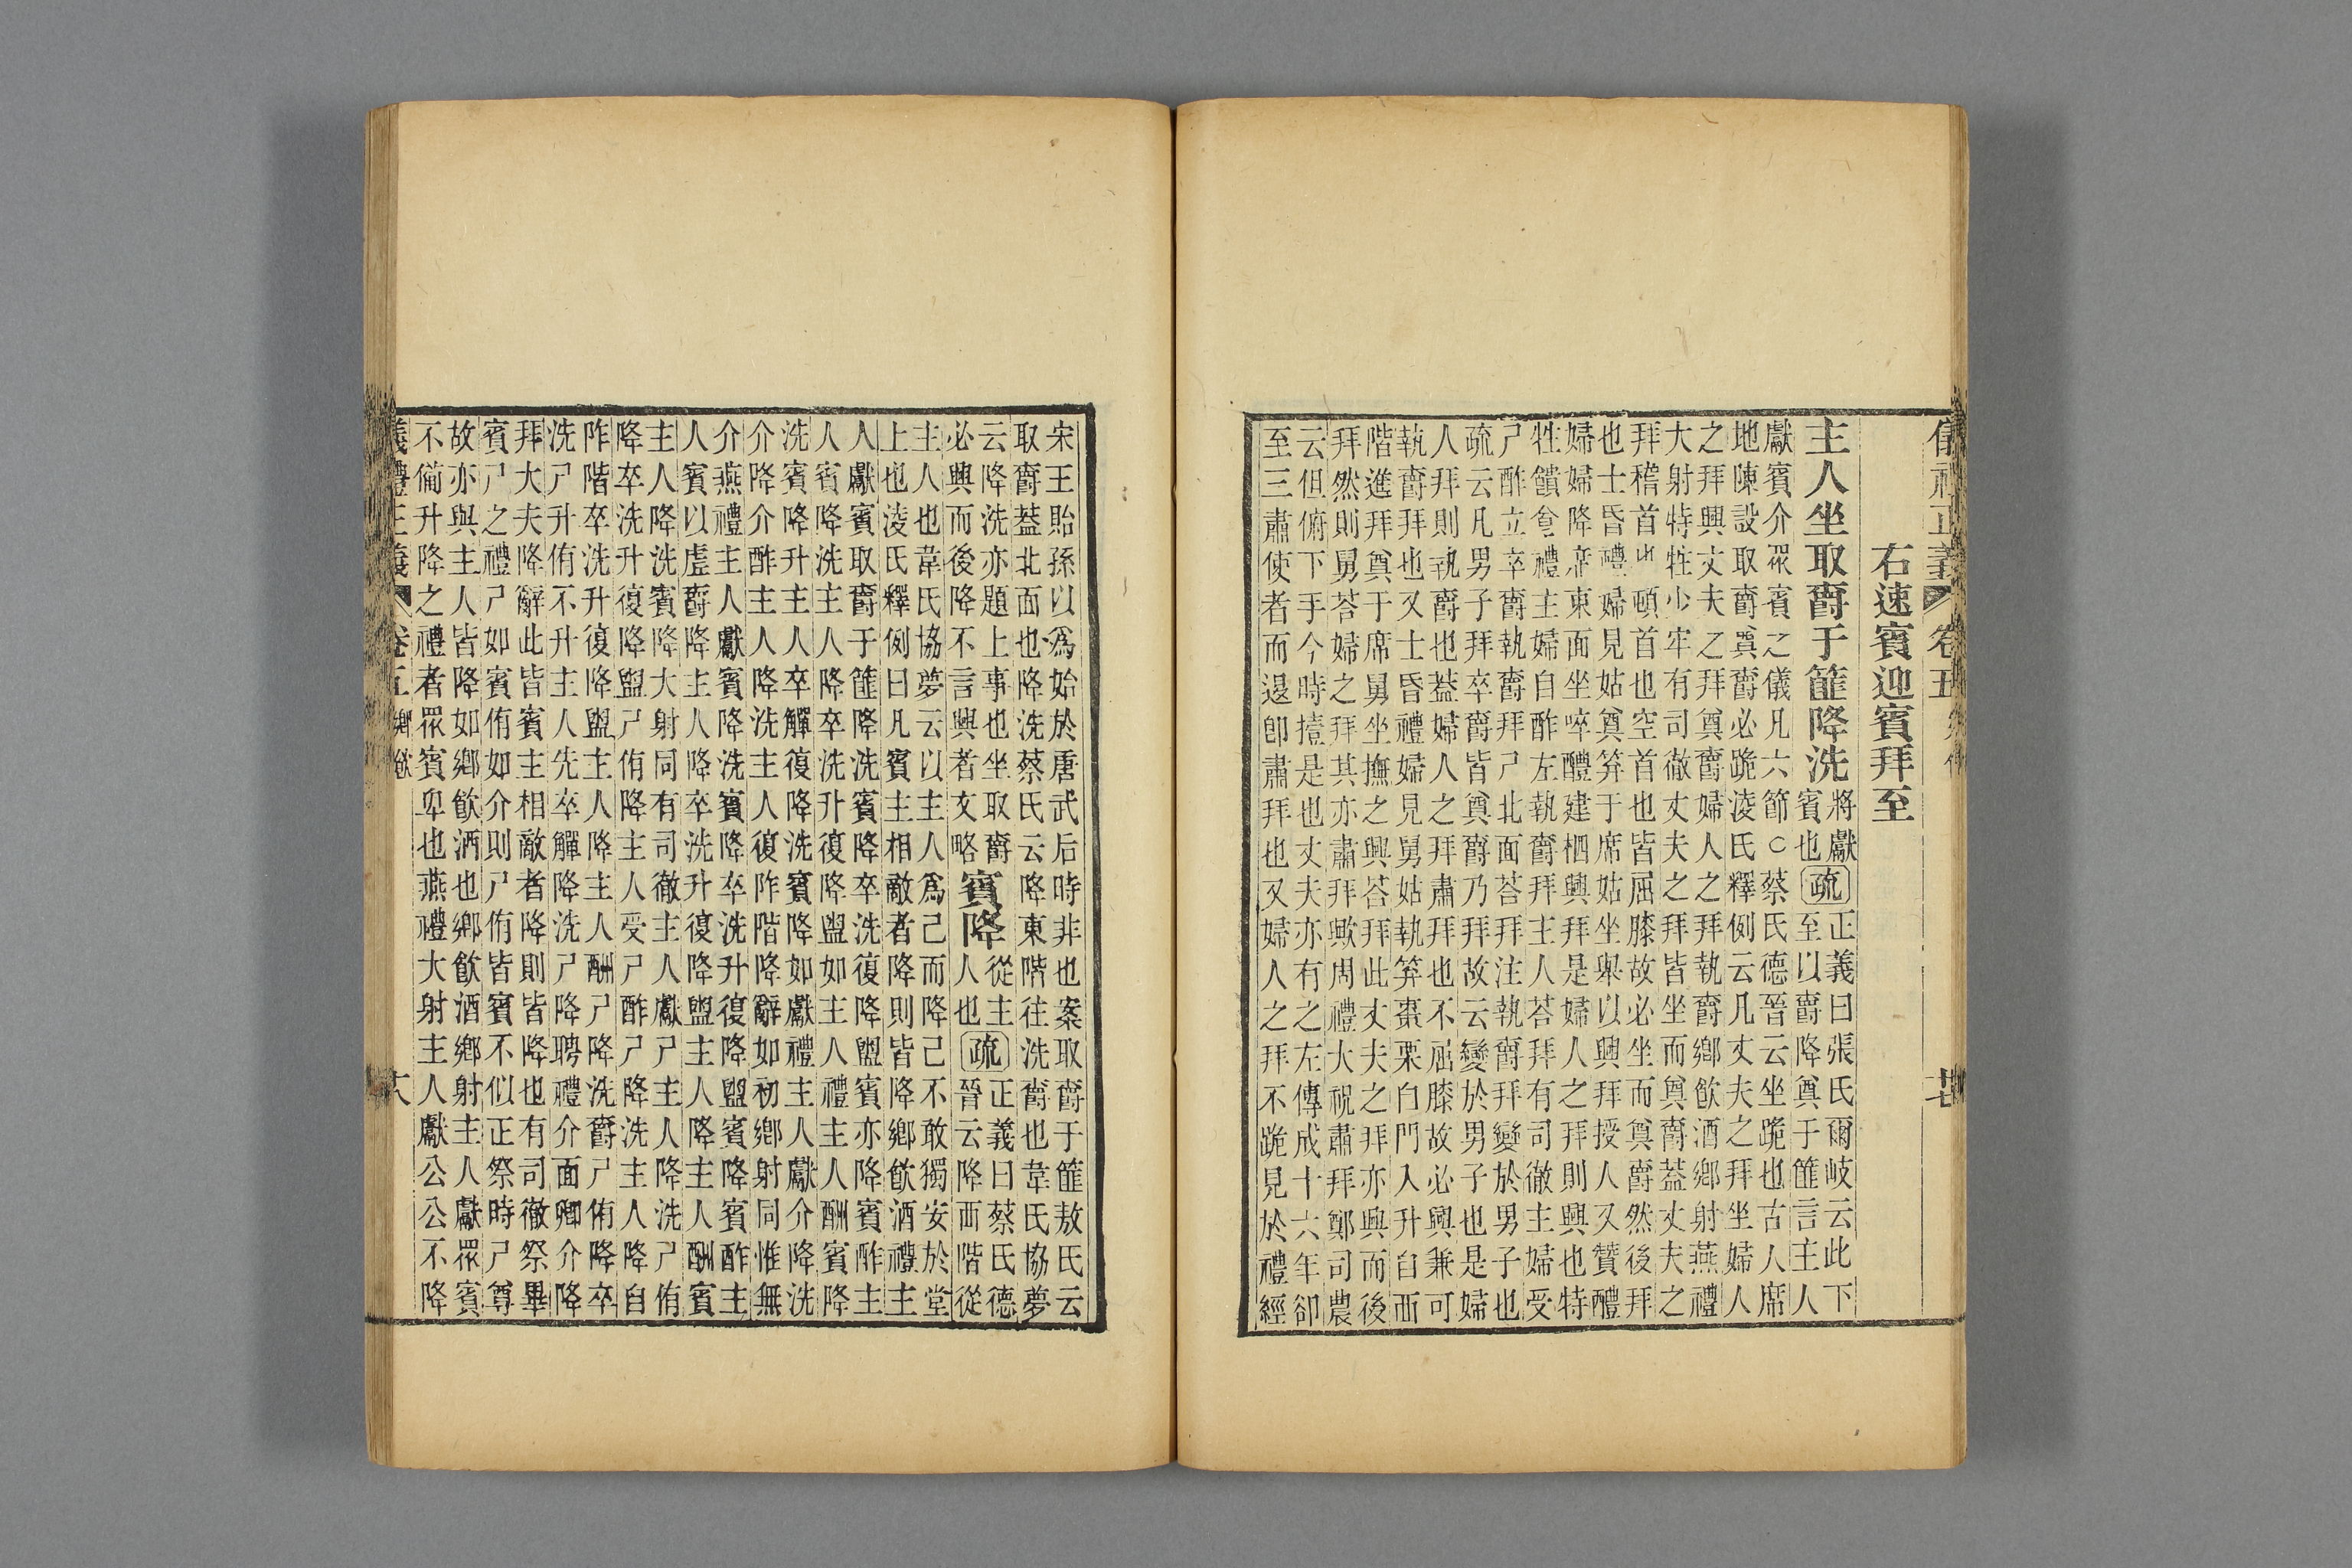 儀禮正義 卷五
右速賓迎賓拜至
主人坐取爵于篚降洗
將獻
賓也
疏
正義曰張氏爾岐云此下
至以爵降奠于篚言主人
獻賓介眾賓之儀凡六節○蔡氏德晉云坐跪也古人席
地陳設取爵奠爵必跪淩氏釋例云凡丈夫之拜坐婦人
之拜興丈夫之拜奠爵婦人之拜執爵鄉飲酒鄉射燕禮
大射特牲少牢有司徹丈夫之拜皆坐而奠爵蓋丈夫之
拜稽首也頓首也空首也皆屈膝故必坐而奠爵然後拜
也士昏禮婦見姑奠笲于席姑坐舉以興拜授人又贊醴
婦婦降席東面坐啐醴建柶興拜是婦人之拜則興也特
牲饋食禮主婦自酢左執爵拜主人荅拜有司徹主婦受
尸酢立卒爵執爵拜尸北面荅拜注執爵拜變於男子也
疏云凡男子拜卒爵皆奠爵乃拜故云變於男子也是婦
人拜則執爵也蓋婦人之拜肅拜也不屈膝故必興兼可
執爵拜也又士昏禮婦見舅姑執笲棗栗自門入升自西
階進拜奠于席舅坐撫之興荅拜此丈夫之拜亦興而後
拜然則舅荅婦之拜其亦肅拜歟周禮大祝肅拜鄭司農
云但俯下手今時撎是也丈夫亦有之左傳成十六年郤
至三肅使者而退卽肅拜也又婦人之拜不跪見於禮經
宋王貽孫以為始於唐武后時非也案取爵于篚敖氏云
取爵蓋北面也降洗蔡氏云降東階往洗爵也韋氏協夢
云降洗亦題上事也坐取爵
必興而後降不言興者文略
賓降
從主
人也
疏
正義曰蔡氏德
晉云降西階從
主人也韋氏協夢云以主人爲己而降己不敢獨安於堂
上也淩氏釋例曰凡賓主相敵者降則皆降鄉飲酒禮主
人獻賓取爵于篚降洗賓降卒洗復降盥賓亦降賓酢主
人賓降洗主人降卒洗升復降盥如主人禮主人酬賓降
洗賓降升主人卒觶復降洗賓降如獻禮主人獻介降洗
介降介酢主人降洗主人復阼階降辭如初鄉射同惟無
介燕禮主人獻賓降洗賓降卒洗升復降盥賓降賓酢主
人賓以虛爵降主人降卒洗升復降盥主人降主人酬賓
主人降洗賓降大射同有司徹主人獻尸主人降洗尸侑
降卒洗升復降盥尸侑降主人受尸酢尸降洗主人降自
阼階卒洗升復降盥主人降主人酬尸降洗爵尸侑降卒
洗尸升侑不升主人先卒觶降洗尸降聘禮介面卿介降
拜大夫降辭此皆賓主相敵者降則皆降也有司徹祭畢
賓尸之禮尸如賓侑如介則尸侑皆賓不似正祭時尸尊
故亦與主人皆降如鄉飲酒也鄉飲酒鄉射主人獻眾賓
不備升降之禮者眾賓卑也燕禮大射主人獻公公不降